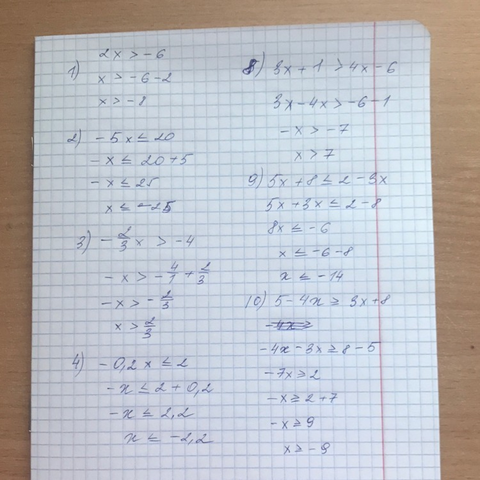 1) 2x > -6
x > -6-2
x > -8
2) -5x ≤ 20
-x ≤ 20+5
-x ≤ 25
x ≤ -25
3) -2/3 x > -4
-x > -4/1 + 2/3
-x > -2/3
x > 2/3
4) -0,2x ≤ 2
-x ≤ 2+0,2
-x ≤ 2,2
x ≤ -2,2
8) 3x+1 > 4x-6
3x-4x > -6-1
-x > -7
x > 7
9) 5x+8 ≤ 2-3x
5x+3x ≤ 2-8
8x ≤ -6
x ≤ -6-8
x ≤ -14
10) 5-4x ≥ 3x+8
-4x ≥
-4x-3x ≥ 8-5
-7x ≥ 2
-x ≥ 2+7
-x ≥ 9
x ≥ -9